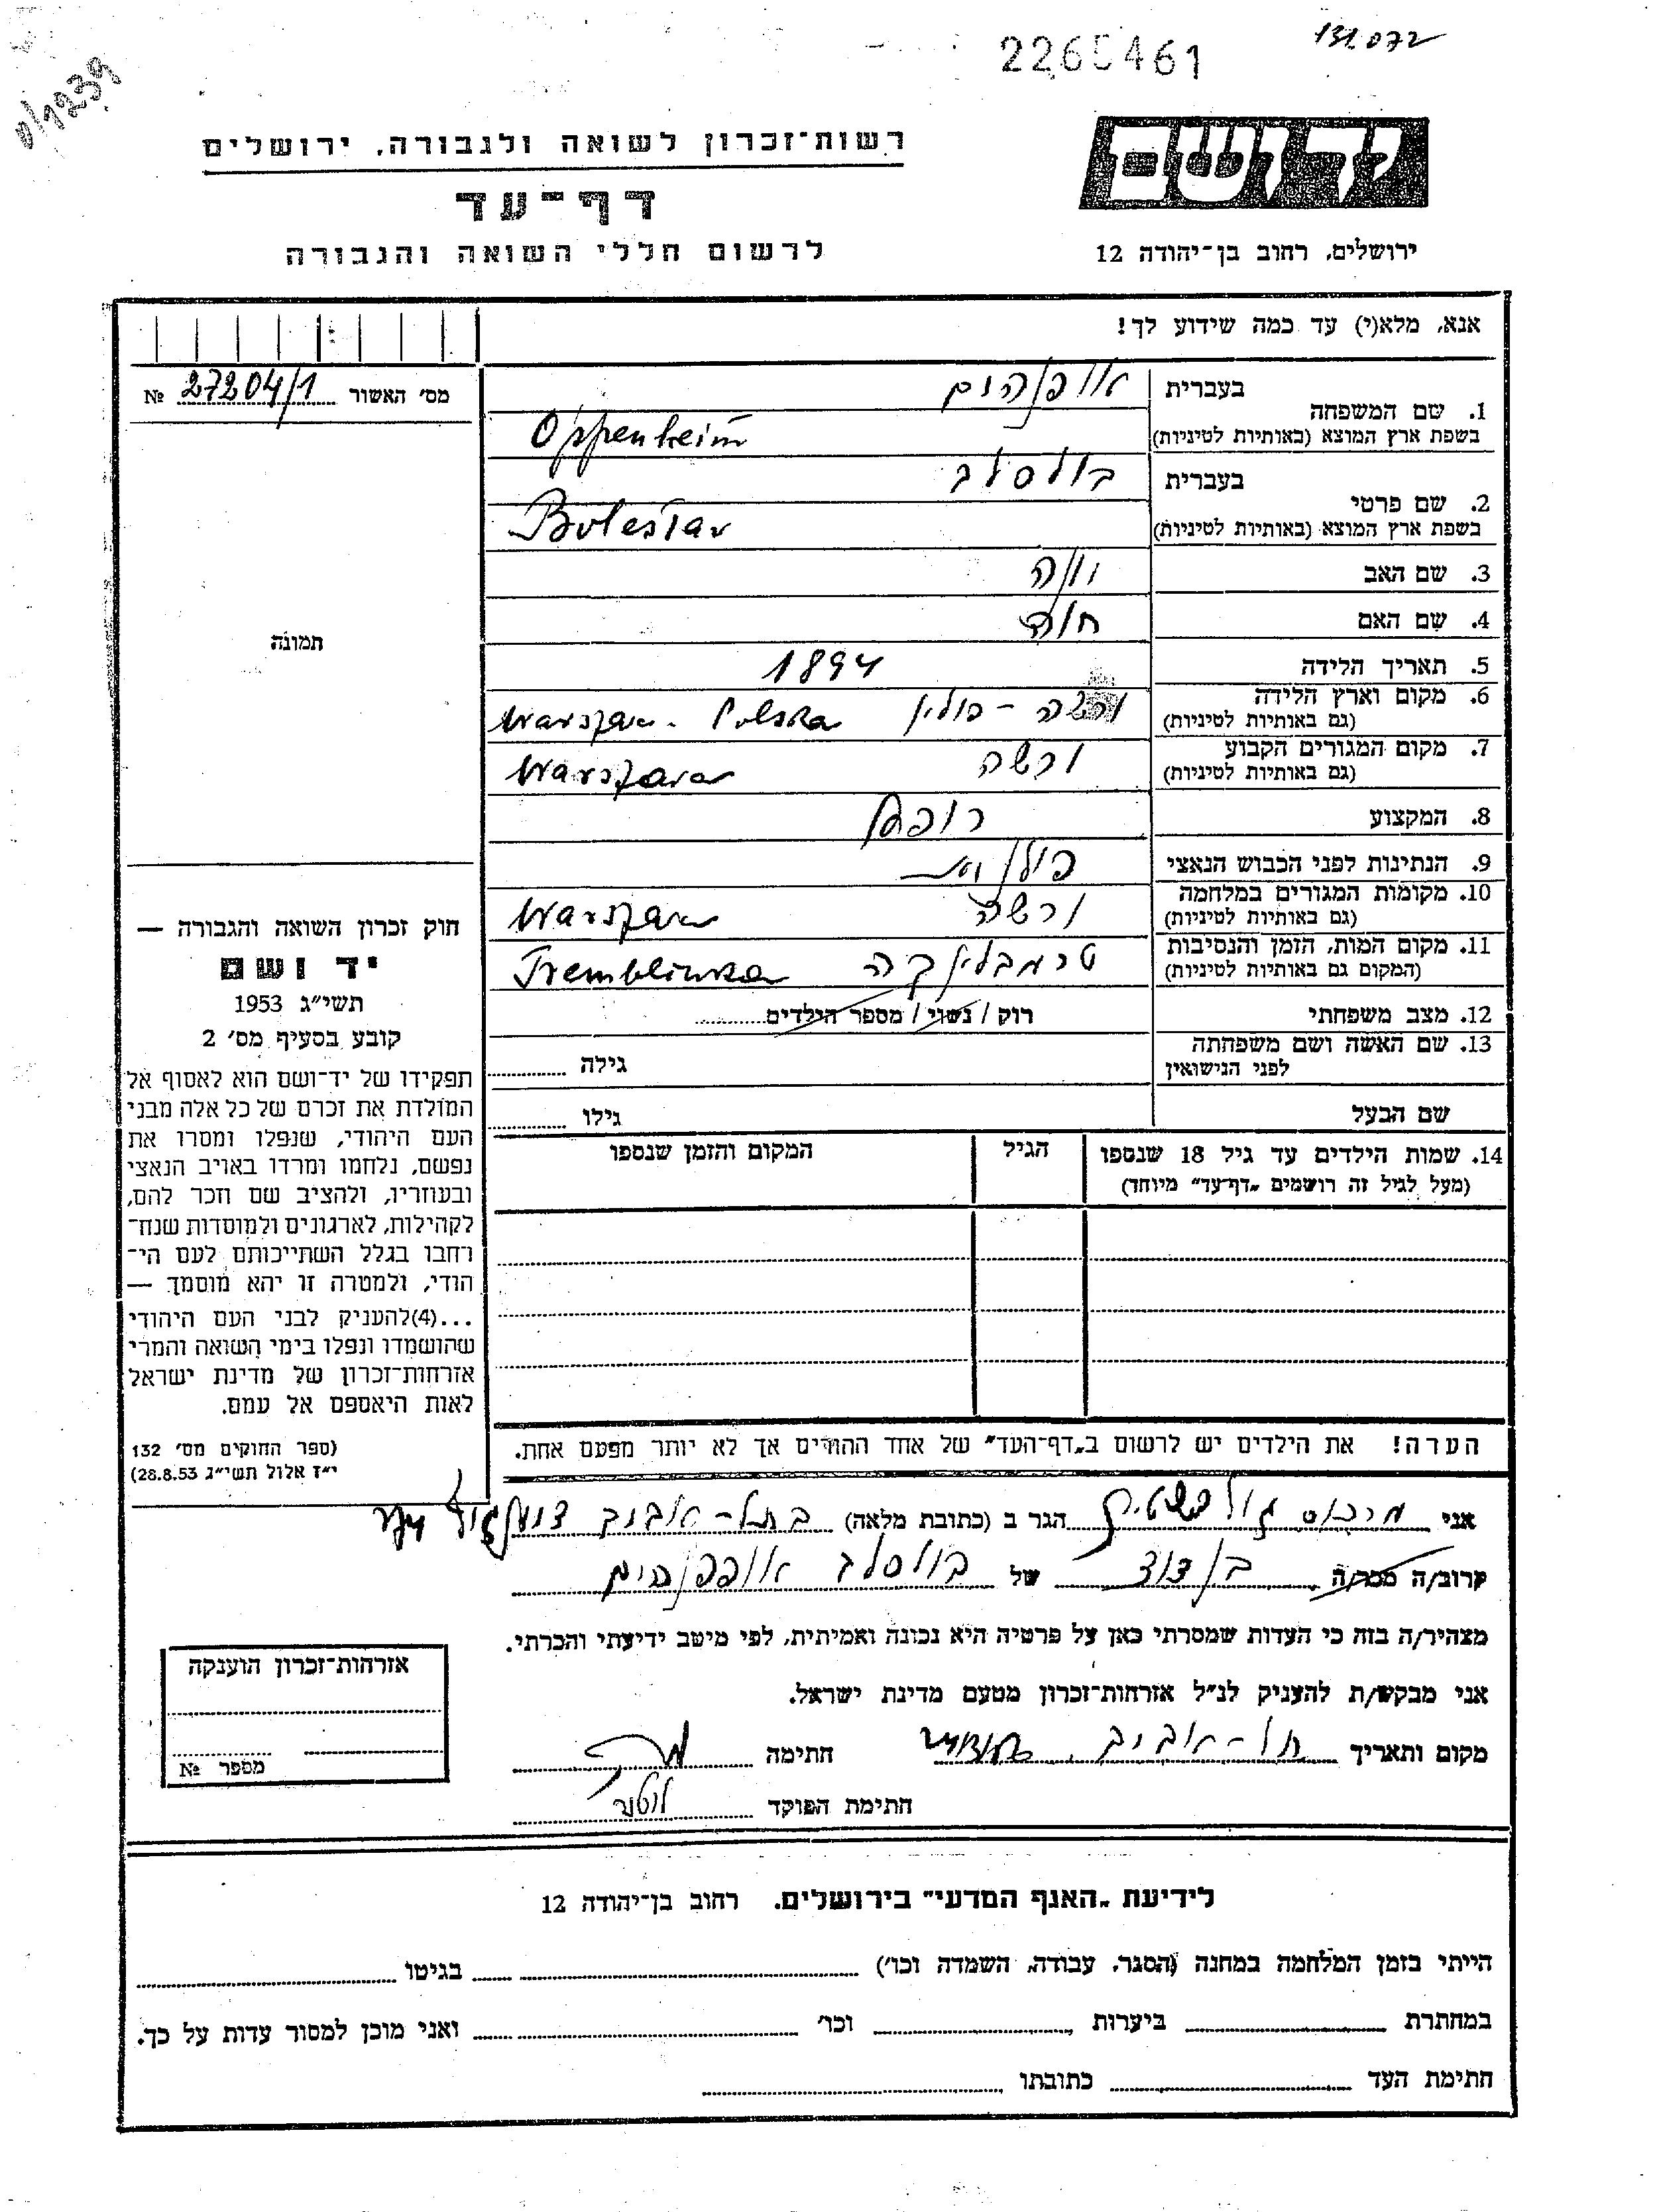 131.072
2265461
0/1239
יד ושם
רשות־זכרון לשואה ולגבורה, ירושלים
דף־עד
לרשום חללי השואה והגבורה
ירושלים, רחוב בן־יהודה 12
אנא, מלא(י) עד כמה שידוע לך!
מס׳ האשור 27204/1 №
1. שם המשפחה
בעברית
אופנהים
בשפת ארץ המוצא (באותיות לטיניות)
Oppenheim
2. שם פרטי
בעברית
בולסלב
בשפת ארץ המוצא (באותיות לטיניות)
Boleslav
3. שם האב
4. שם האם
5. תאריך הלידה 1894
6. מקום וארץ הלידה ורשה - פולין Warszawa - Polska
(גם באותיות לטיניות)
7. מקום המגורים הקבוע ורשה Warszawa
(גם באותיות לטיניות)
8. המקצוע רופא
9. הנתינות לפני הכבוש הנאצי פולנית
10. מקומות המגורים במלחמה ורשה Warszawa
(גם באותיות לטיניות)
11. מקום המות, הזמן והנסיבות טרמבלינקה Tremblinka
(המקום גם באותיות לטיניות)
12. מצב משפחתי רוק / נשוי / מספר הילדים
13. שם האשה ושם משפחתה גילה
לפני הנישואין
שם הבעל גילו
14. שמות הילדים עד גיל 18 שנספו הגיל המקום והזמן שנספו
(מעל לגיל זה רושמים „דף־עד״ מיוחד)
הערה! את הילדים יש לרשום ב„דף־העד״ של אחד ההורים אך לא יותר מפעם אחת.
תמונה
חוק זכרון השואה והגבורה —
יד ושם
תשי״ג 1953
קובע בסעיף מס׳ 2
תפקידו של יד־ושם הוא לאסוף אל
המולדת את זכרם של כל אלה מבני
העם היהודי, שנפלו ומסרו את
נפשם, נלחמו ומרדו באויב הנאצי
ובעוזריו, ולהציב שם וזכר להם,
לקהילות, לארגונים ולמוסדות שנח־
רבו בגלל השתייכותם לעם הי־
הודי, ולמטרה זו יהא מוסמך —
...(4)להעניק לבני העם היהודי
שהושמדו ונפלו בימי השואה והמרי
אזרחות־זכרון של מדינת ישראל
לאות היאספם אל עמם.
(ספר החוקים מס׳ 132
י״ז אלול תשי״ג 28.8.53)
אני מרכוס גולדשטיין הגר ב (כתובת מלאה) בתל-אביב
קרוב/ה מכר/ה בן דוד של בולסלב אופפנהים
מצהיר/ה בזה כי העדות שמסרתי כאן על פרטיה היא נכונה ואמיתית, לפי מיטב ידיעתי והכרתי.
אני מבקש/ת להעניק לנ״ל אזרחות־זכרון מטעם מדינת ישראל.
מקום ותאריך תל-אביב, חתימה
חתימת הפוקד
אזרחות־זכרון הוענקה
מספר №
לידיעת „האגף המדעי״ בירושלים. רחוב בן־יהודה 12
הייתי בזמן המלחמה במחנה (הסגר, עבודה, השמדה וכו׳) בגיטו
במחתרת ביערות וכו׳ ואני מוכן למסור עדות על כך.
חתימת העד כתובתו